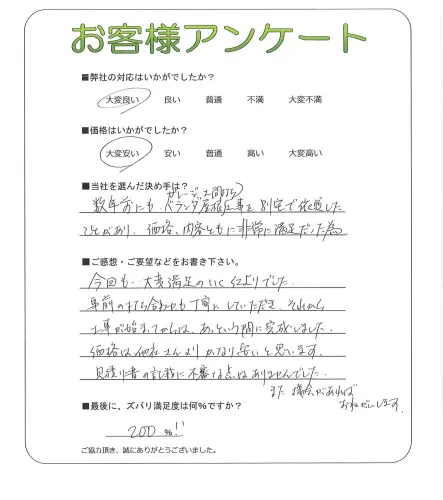 お客様アンケート
■弊社の対応はいかがでしたか？
大変良い 良い 普通 不満 大変不満
■価格はいかがでしたか？
大変安い 安い 普通 高い 大変高い
■当社を選んだ決め手は？
ガレージ土間打ち
数年前にも ベランダ屋根工事を 別宅で依頼した
ことがあり、価格、内容ともに非常に満足だった為
■ご感想・ご要望などをお書き下さい。
今回も大変満足のいく仕上りでした。
事前の打ち合わせも丁寧にしていただき、それから
工事が始まってからは、あっという間に完成しました。
価格は他社さんよりかなり安いと思います。
見積り書の記載に不審な点はありませんでした。
また機会があれば
おねがいします。
■最後に、ズバリ満足度は何％ですか？
200 %!!
ご協力頂き、誠にありがとうございました。